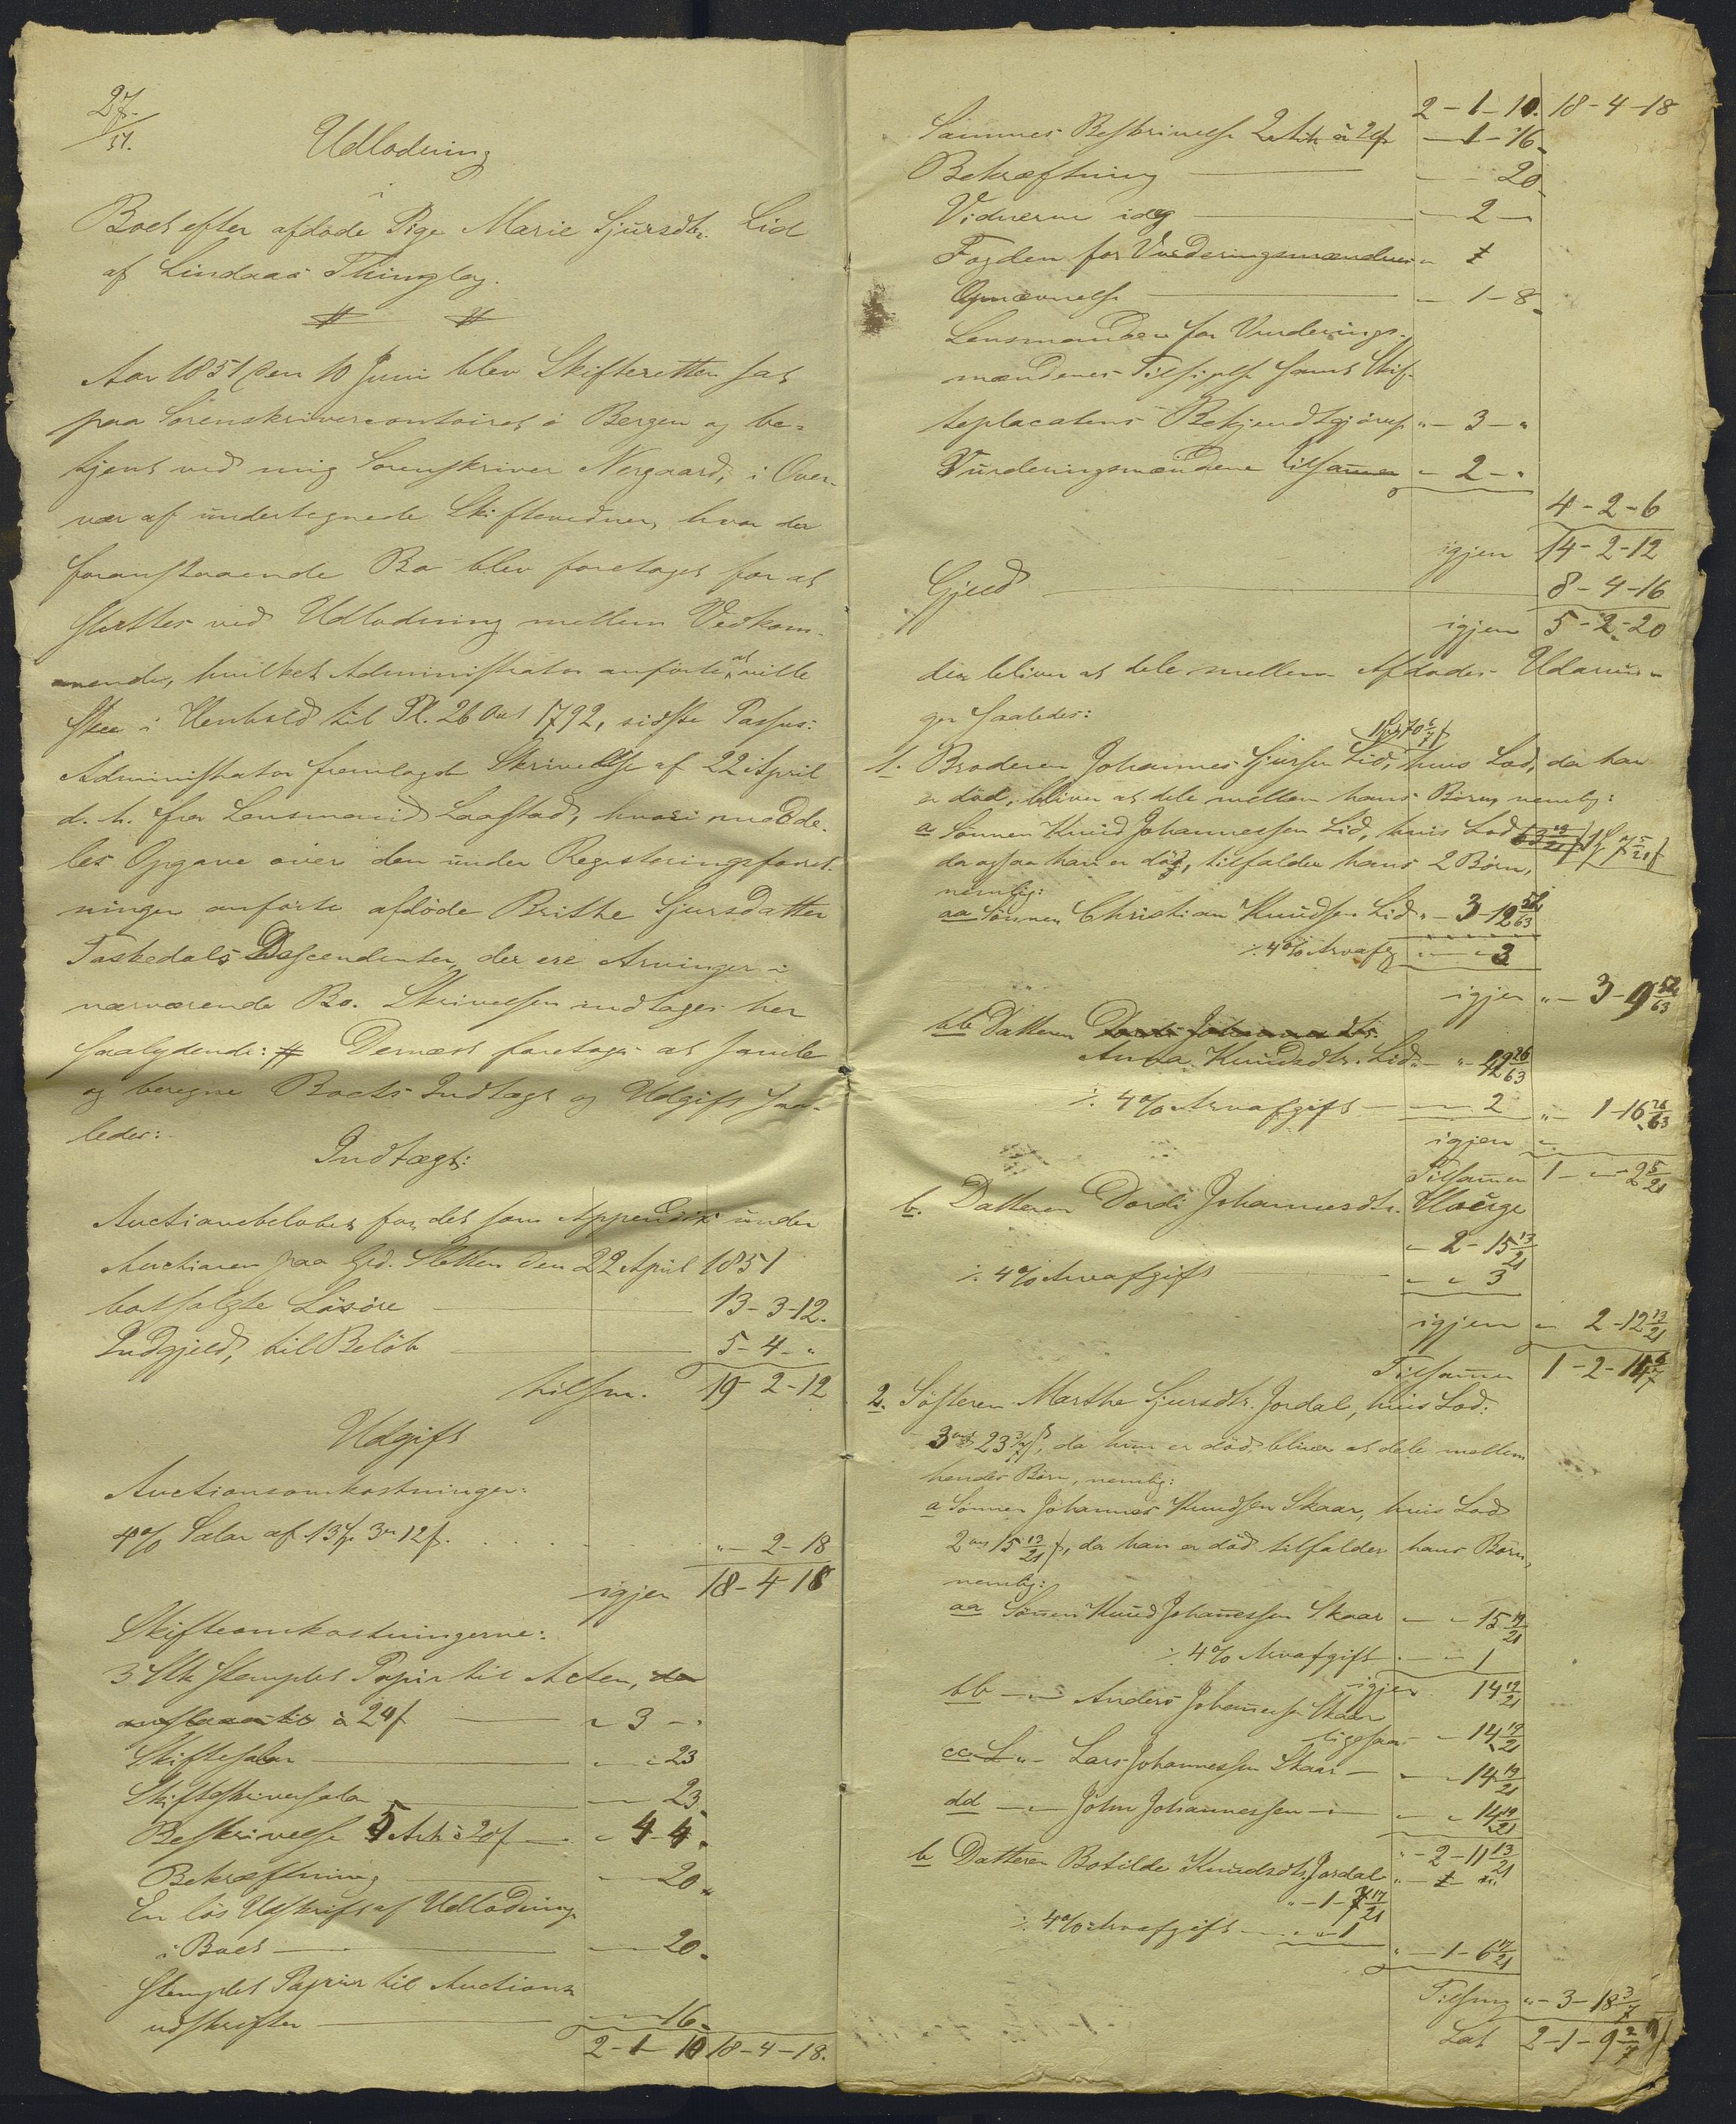 27/51.
Udlodning
i
Boet efter afdöde Pige Marie Sjursdtr. Lid
af Lindaas Thinglag.
Aar 1851 den 10 Juni blev Skifteretten sat
paa Sorenskrivercontoiret i Bergen og be-
tjent ved mig Sorenskriver Norgaard, i Over-
vær af undertegnede Skiftevidner, hvor da
foranstaaende Bo blev foretaget for at
sluttes ved Udlodning mellem Vedkom-
mende, hvilket Administrator anførte at ville
skee i Henhold til Pl. 26 Oct 1792, sidste Passus:
Administrator fremlagde Skrivelse af 22 April
d. A. fra Lensmand Laastad, hvori medde-
les Opgave over den under Registeringsforret-
ningen anførte afdöde Brithe Sjursdatter
Taskedals Descendenter, der ere Arvinger i
nærværende Bo. Skrivelsen indtages her
saalydende: # Dernæst foretoges at samle
og beregne Boets Indtægt og Udgift saa-
ledes:
Indtægt:
Auctionsbeløbet for det som Appendix under
Auctionen paa Gd. Sletten den 22 April 1851
bortsolgte Løsöre 13-3-12.
Indgjeld, til Beløb 5-4-"
tilsm. 19-2-12
Udgift
Auctionsomkostninger:
4% Salar af 13 3 12 "-2-18
igjen 18-4-18
Skifteomkostningerne:
3 Ark stemplet Papir til Acten,
à 24 " 3 - "
Skiftesalær " " 23
Skifteskriversalær " " 23
Beskrivelse 5 Ark à 20 " 4-4.
Bekræftning " 20
En løs Udskrift af Udlodning
i Boet 20.
Stemplet Papir til Auctions
udskrifter 16.
2-1-10 18-4-18.
2-1-10. 18-4-18
Sammes Beskrivelse 2 Ark à 20 - 1-16
Bekræftning 20
Vidnerne ideg - 2 -
Fogden for Vurderingsmændenes
Opnævnelse - 1-8
Lensmanden for Vurderings-
mændenes Tilsigelse samt Skif-
teplacatens Bekjendtgjørelse " - 3 - "
Vurderingsmændene tilsammen - 2 - "
4-2-6
igjen 14-2-12
Gjeld 8-4-16
igjen 5-2-20
der bliver at dele mellem Afdødes Udarvin-
ger saaledes:
1. Broderen Johannes Sjursen Lid, hvis Lod, da han
er död, bliver at dele mellem hans Börn, nemlig:
a Sönnen Knud Johannessen Lid, hvis Lod
da ogsaa han er död, tilfalder hans 2 Börn,
nemlig:
aa Sönnen Christian Knudsen Lid " - 3-12 52/63
÷ 4% Arvafg " " 3
igjen " - 3-9 52/63
bb Datteren
Anna Knudsdtr. Lid 26/63
÷ 4% Arvafgift 2 " 1-16 26/63
igjen
Tilsammen 1 - " - 2 5/21
b. Datteren Dordi Johannesdtr.
" 2-15 13/21
÷ 4% Arvafgift " " 3
igjen " 2-12 13/21
Tilsammen 1-2-14 6/7
2. Søsteren Marthe Sjursdtr. Jordal, hvis Lod:
3 23 3/7, da hun er död, bliver at dele mellem
hendes Börn, nemlig:
a Sönnen Johannes Knudsen Skaar, hvis Lod
2 15 13/21, da han er död tilfalder hans Börn,
nemlig:
aa Sönnen Knud Johannessen Skaar " " 15 19/21
÷ 4% Arvafgift " " 1
igjen 14 19/21
bb - " - Anders Johannessen Skaar
ligesaa - 14 19/21
cc - " - Lars Johannessen Skaar - " " 14 19/21
dd - " - John Johannessen - " " 14 19/21
"-2-11 13/21
b Datteren Botilde Knudsdtr. Jordal
"-1-7 17/21
÷ 4% Arvafgift " " 1
" - 1-6 17/21
Tilsam " 3-18 3/7
Lat 2-1-9 2/7